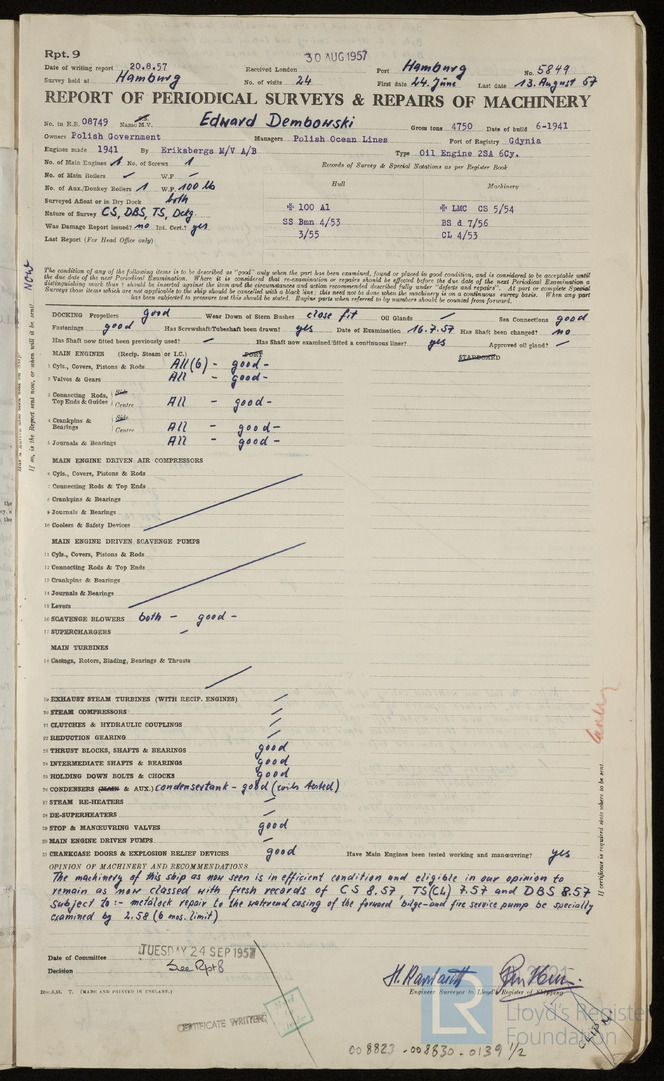 Rpt. 9
30 AUG 1957
Date of writing report 20.8.57 Received London Port Hamburg No. 5849
Survey held at Hamburg No. of visits 24 First date 24. June Last date 13. August 57
REPORT OF PERIODICAL SURVEYS & REPAIRS OF MACHINERY
No. in R.B. 08749 Name M.V. Edward Dembowski Gross tons 4750 Date of build 6-1941
Owners Polish Government Managers Polish Ocean Lines Port of Registry Gdynia
Engines made 1941 By Eriksbergs M/V A/B Type Oil Engine 2SA 6Cy.
No. of Main Engines 1 No. of Screws 1 Records of Survey & Special Notations as per Register Book
No. of Main Boilers W.P.
No. of Aux./Donkey Boilers 1 W.P. 100 lb Hull Machinery
Surveyed Afloat or in Dry Dock both
Nature of Survey CS, DBS, TS, Dckg. ✠ 100 A1 ✠ LMC CS 5/54
Was Damage Report issued? no Int. Cert.? yes SS Bmn 4/53 BS d 7/56
Last Report (For Head Office only) 3/55 CL 4/53
The condition of any of the following items is to be described as "good" only when the part has been examined, found or placed in good condition, and is considered to be acceptable until
the due date of the next Periodical Examination. Where it is considered that re-examination or repairs should be effected before the due date of the next Periodical Examination a
distinguishing mark thus † should be inserted against the item and the circumstances and action recommended described fully under "defects and repairs". At part or complete Special
Surveys those items which are not applicable to the ship should be cancelled with a black line; this need not be done when the machinery is on a continuous survey basis. When any part
has been subjected to pressure test this should be stated. Engine parts when referred to by numbers should be counted from forward.
DOCKING Propellers good Wear Down of Stern Bushes close fit Oil Glands Sea Connections good
Fastenings good Has Screwshaft/Tubeshaft been drawn? yes Date of Examination 16.7.57 Has Shaft been changed? no
Has Shaft now fitted been previously used? Has Shaft now examined/fitted a continuous liner? yes Approved oil gland?
MAIN ENGINES (Recip. Steam or I.C.) PORT STARBOARD
1 Cyls., Covers, Pistons & Rods All (6) - good -
2 Valves & Gears All - good -
3 Connecting Rods, Top Ends & Guides Side Centre All - good -
4 Crankpins & Bearings Side Centre All - good -
5 Journals & Bearings All - good -
MAIN ENGINE DRIVEN AIR COMPRESSORS
6 Cyls., Covers, Pistons & Rods
7 Connecting Rods & Top Ends
8 Crankpins & Bearings
9 Journals & Bearings
10 Coolers & Safety Devices
MAIN ENGINE DRIVEN SCAVENGE PUMPS
11 Cyls., Covers, Pistons & Rods
12 Connecting Rods & Top Ends
13 Crankpins & Bearings
14 Journals & Bearings
15 Levers
16 SCAVENGE BLOWERS both - good -
17 SUPERCHARGERS
MAIN TURBINES
18 Casings, Rotors, Blading, Bearings & Thrusts
19 EXHAUST STEAM TURBINES (WITH RECIP. ENGINES)
20 STEAM COMPRESSORS
21 CLUTCHES & HYDRAULIC COUPLINGS
22 REDUCTION GEARING
23 THRUST BLOCKS, SHAFTS & BEARINGS good
24 INTERMEDIATE SHAFTS & BEARINGS good
25 HOLDING DOWN BOLTS & CHOCKS good
26 CONDENSERS (MAIN & AUX.) condensertank - good (coils tested)
27 STEAM RE-HEATERS
28 DE-SUPERHEATERS
29 STOP & MANŒUVRING VALVES good
30 MAIN ENGINE DRIVEN PUMPS
31 CRANKCASE DOORS & EXPLOSION RELIEF DEVICES good Have Main Engines been tested working and manœuvring? yes
OPINION OF MACHINERY AND RECOMMENDATIONS
The machinery of this ship as now seen is in efficient condition and eligible in our opinion to
remain as now classed with fresh records of CS 8.57, TS(CL) 7.57 and DBS 8.57
subject to :- metalock repair to the waterend casing of the forward bilge-and fire service pump be specially
examined by 2.58 (6 mos. limit)
If certificate is required state where to be sent
Date of Committee TUESDAY 24 SEP 1957
Decision See Rpt 8
Engineer Surveyors to Lloyd's Register of Shipping
20m.8,55. T. (MADE AND PRINTED IN ENGLAND.)
CERTIFICATE WRITTEN
LR
Lloyd's Register
Foundation
008823-008830-0139 1/2